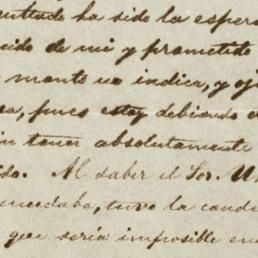 ha sido la espera
cido de mi y prometido
monto no indica, y oj
pues estoy debiendo
tener absolutamente
do. Al saber el Sor.
quedaba, tuvo la cond
que seria imposible en